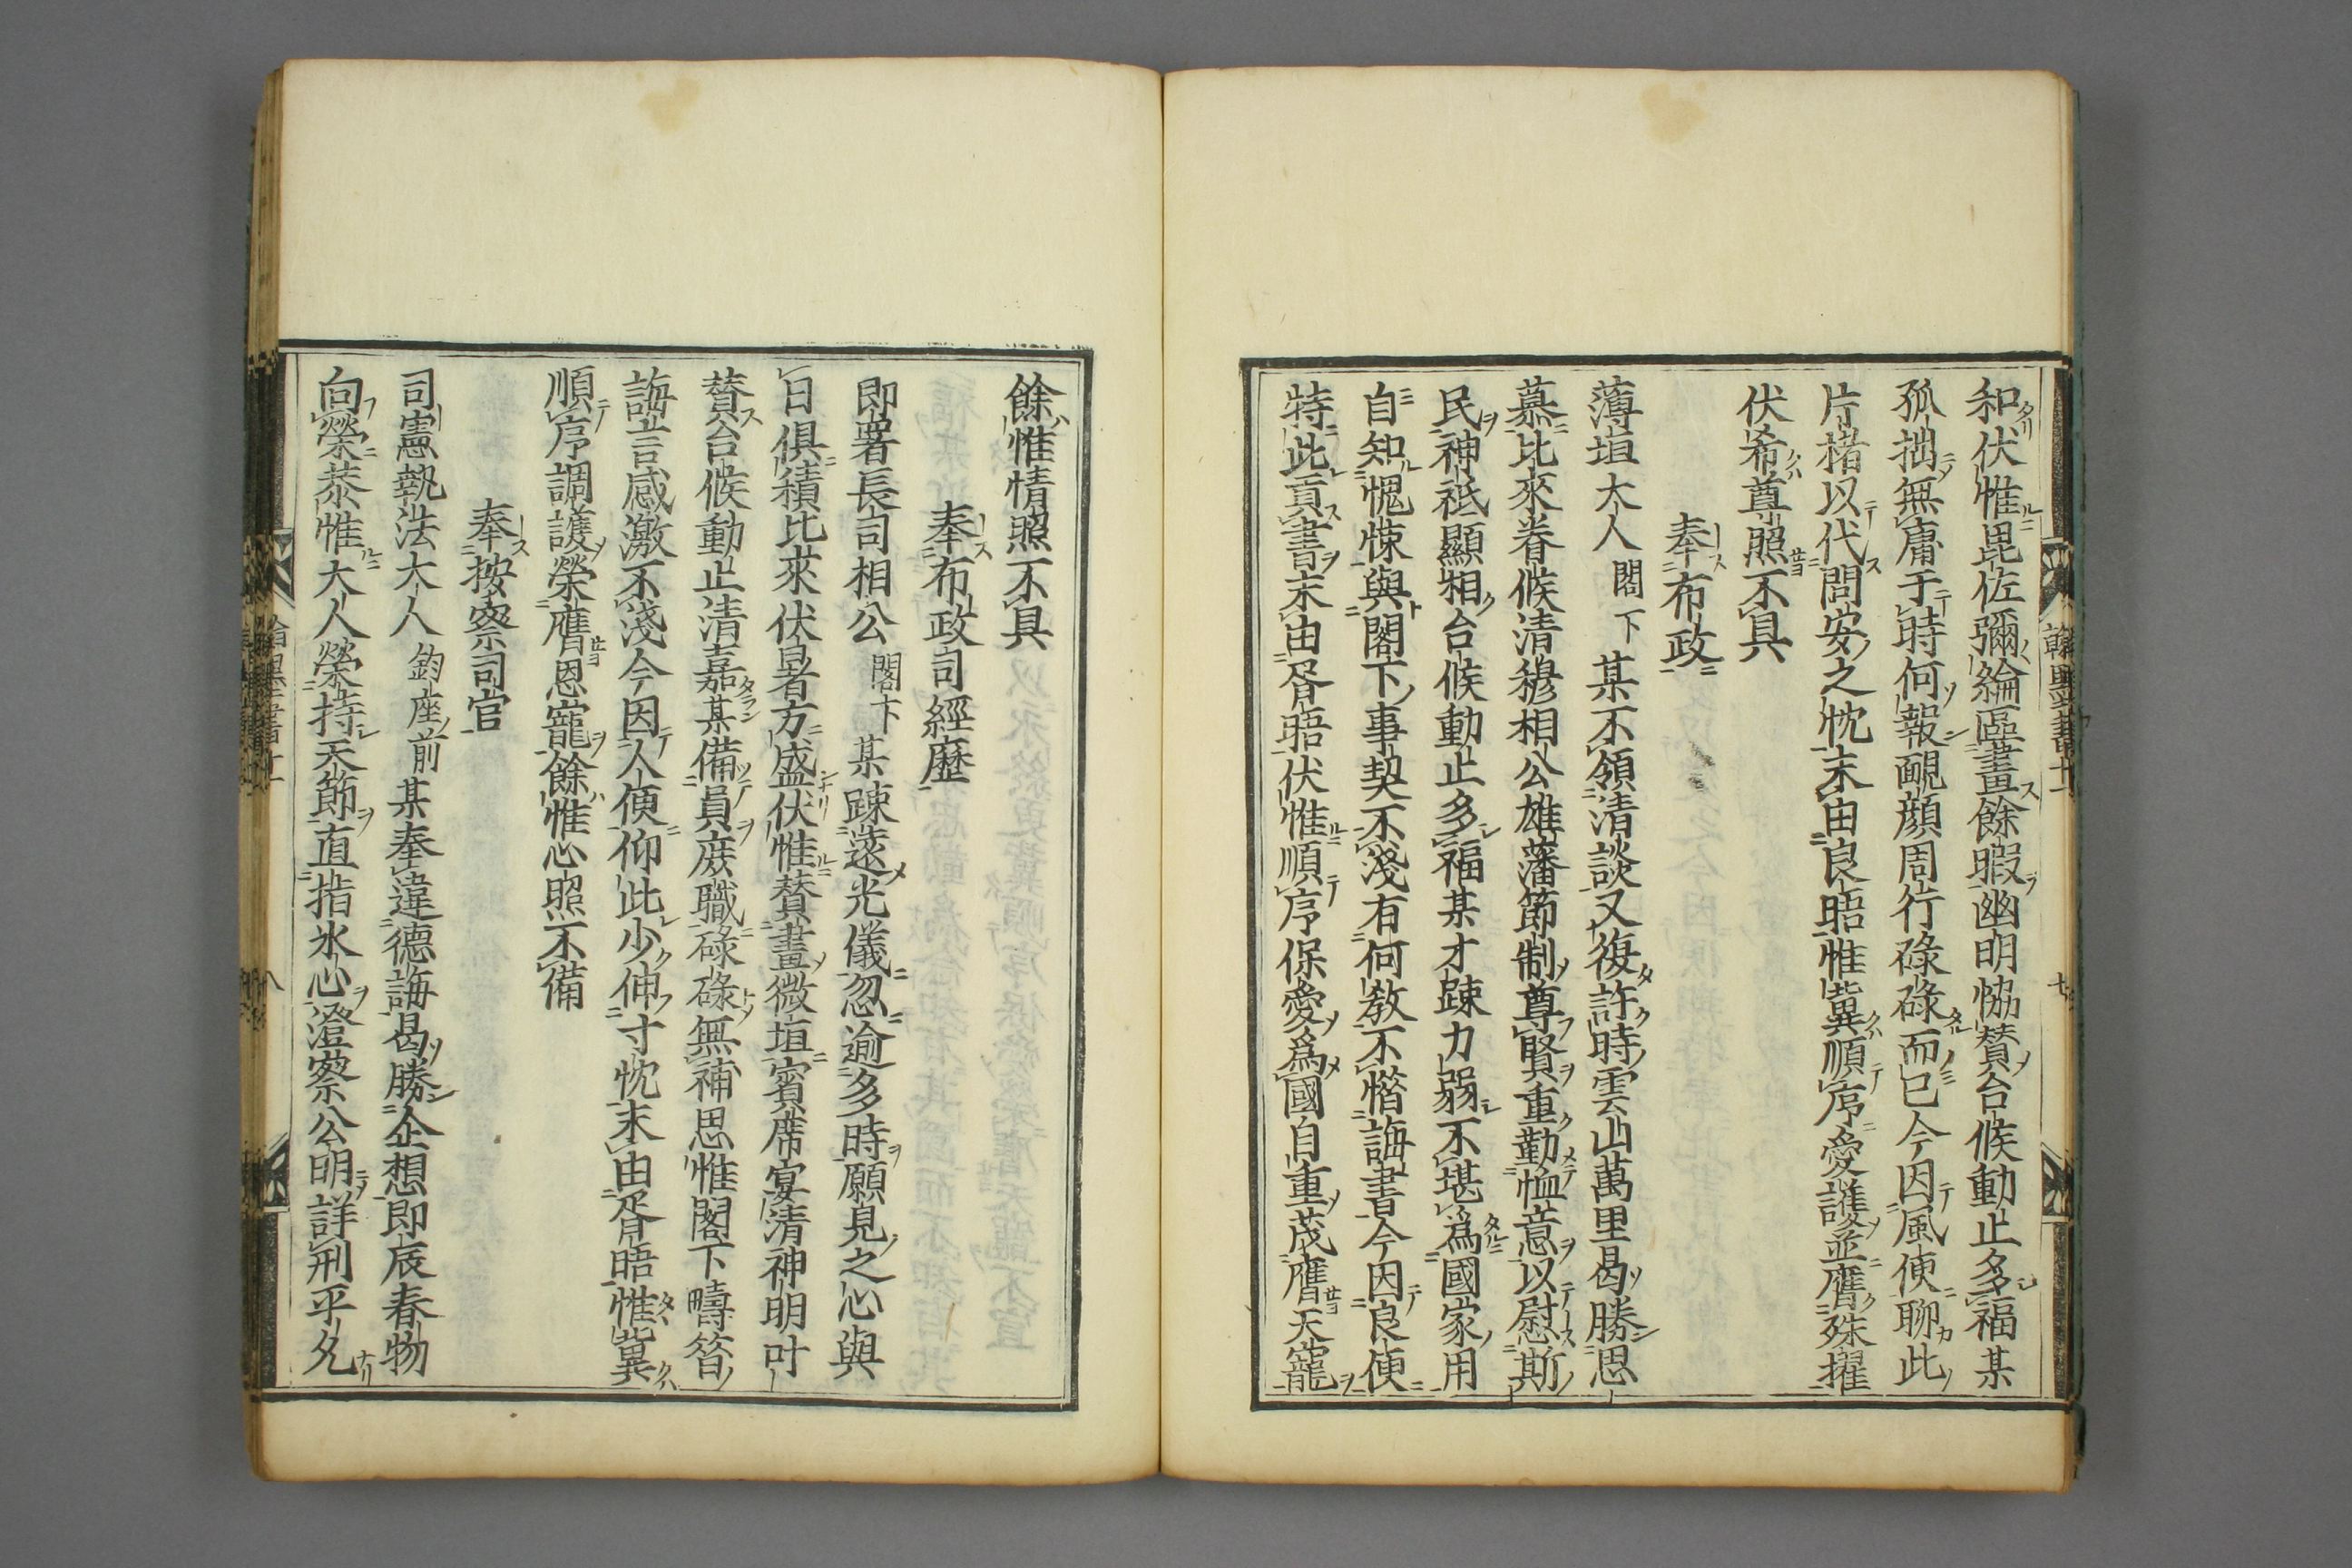 和伏惟毘佐彌綸區畫餘暇幽明恊賛台候動止多福某
孤拙無庸于時何報靦顔周行碌碌而已今因風便聊此
片楮以代問安之忱末由良晤惟冀順序愛護並膺殊擢
伏希尊照不具
奉布政
薄垣大人閣下某不領清談又復許時雲山萬里曷勝思
慕比來眷候清穆相公雄藩節制尊賢重勤恤意以慰斯
民神祇顯相台候動止多福某才踈力弱不堪爲國家用
自知愧悚與閣下事契不淺有何教不惜誨書今因良便
特此貢書末由胥晤伏惟順序保愛爲國自重茂膺天寵
餘惟情照不具
奉布政司經歷
即署長司相公閣下某踈濶光儀忽逾多時願見之心與
日俱積比來伏暑方盛伏惟賛畫微垣賓席宴清神明叶
賛台候動止清嘉某備員庶職碌碌無補思惟閣下疇昔
誨言感激不淺今因人便仰此少伸寸忱末由胥晤惟冀
順序調護榮膺恩寵餘惟心照不備
奉按察司官
司憲執法大人鈞座前某奉違德誨曷勝企想即辰春物
向榮恭惟大人榮持天節直指氷心澄察公明詳刑平允
翰墨書十一
七
八